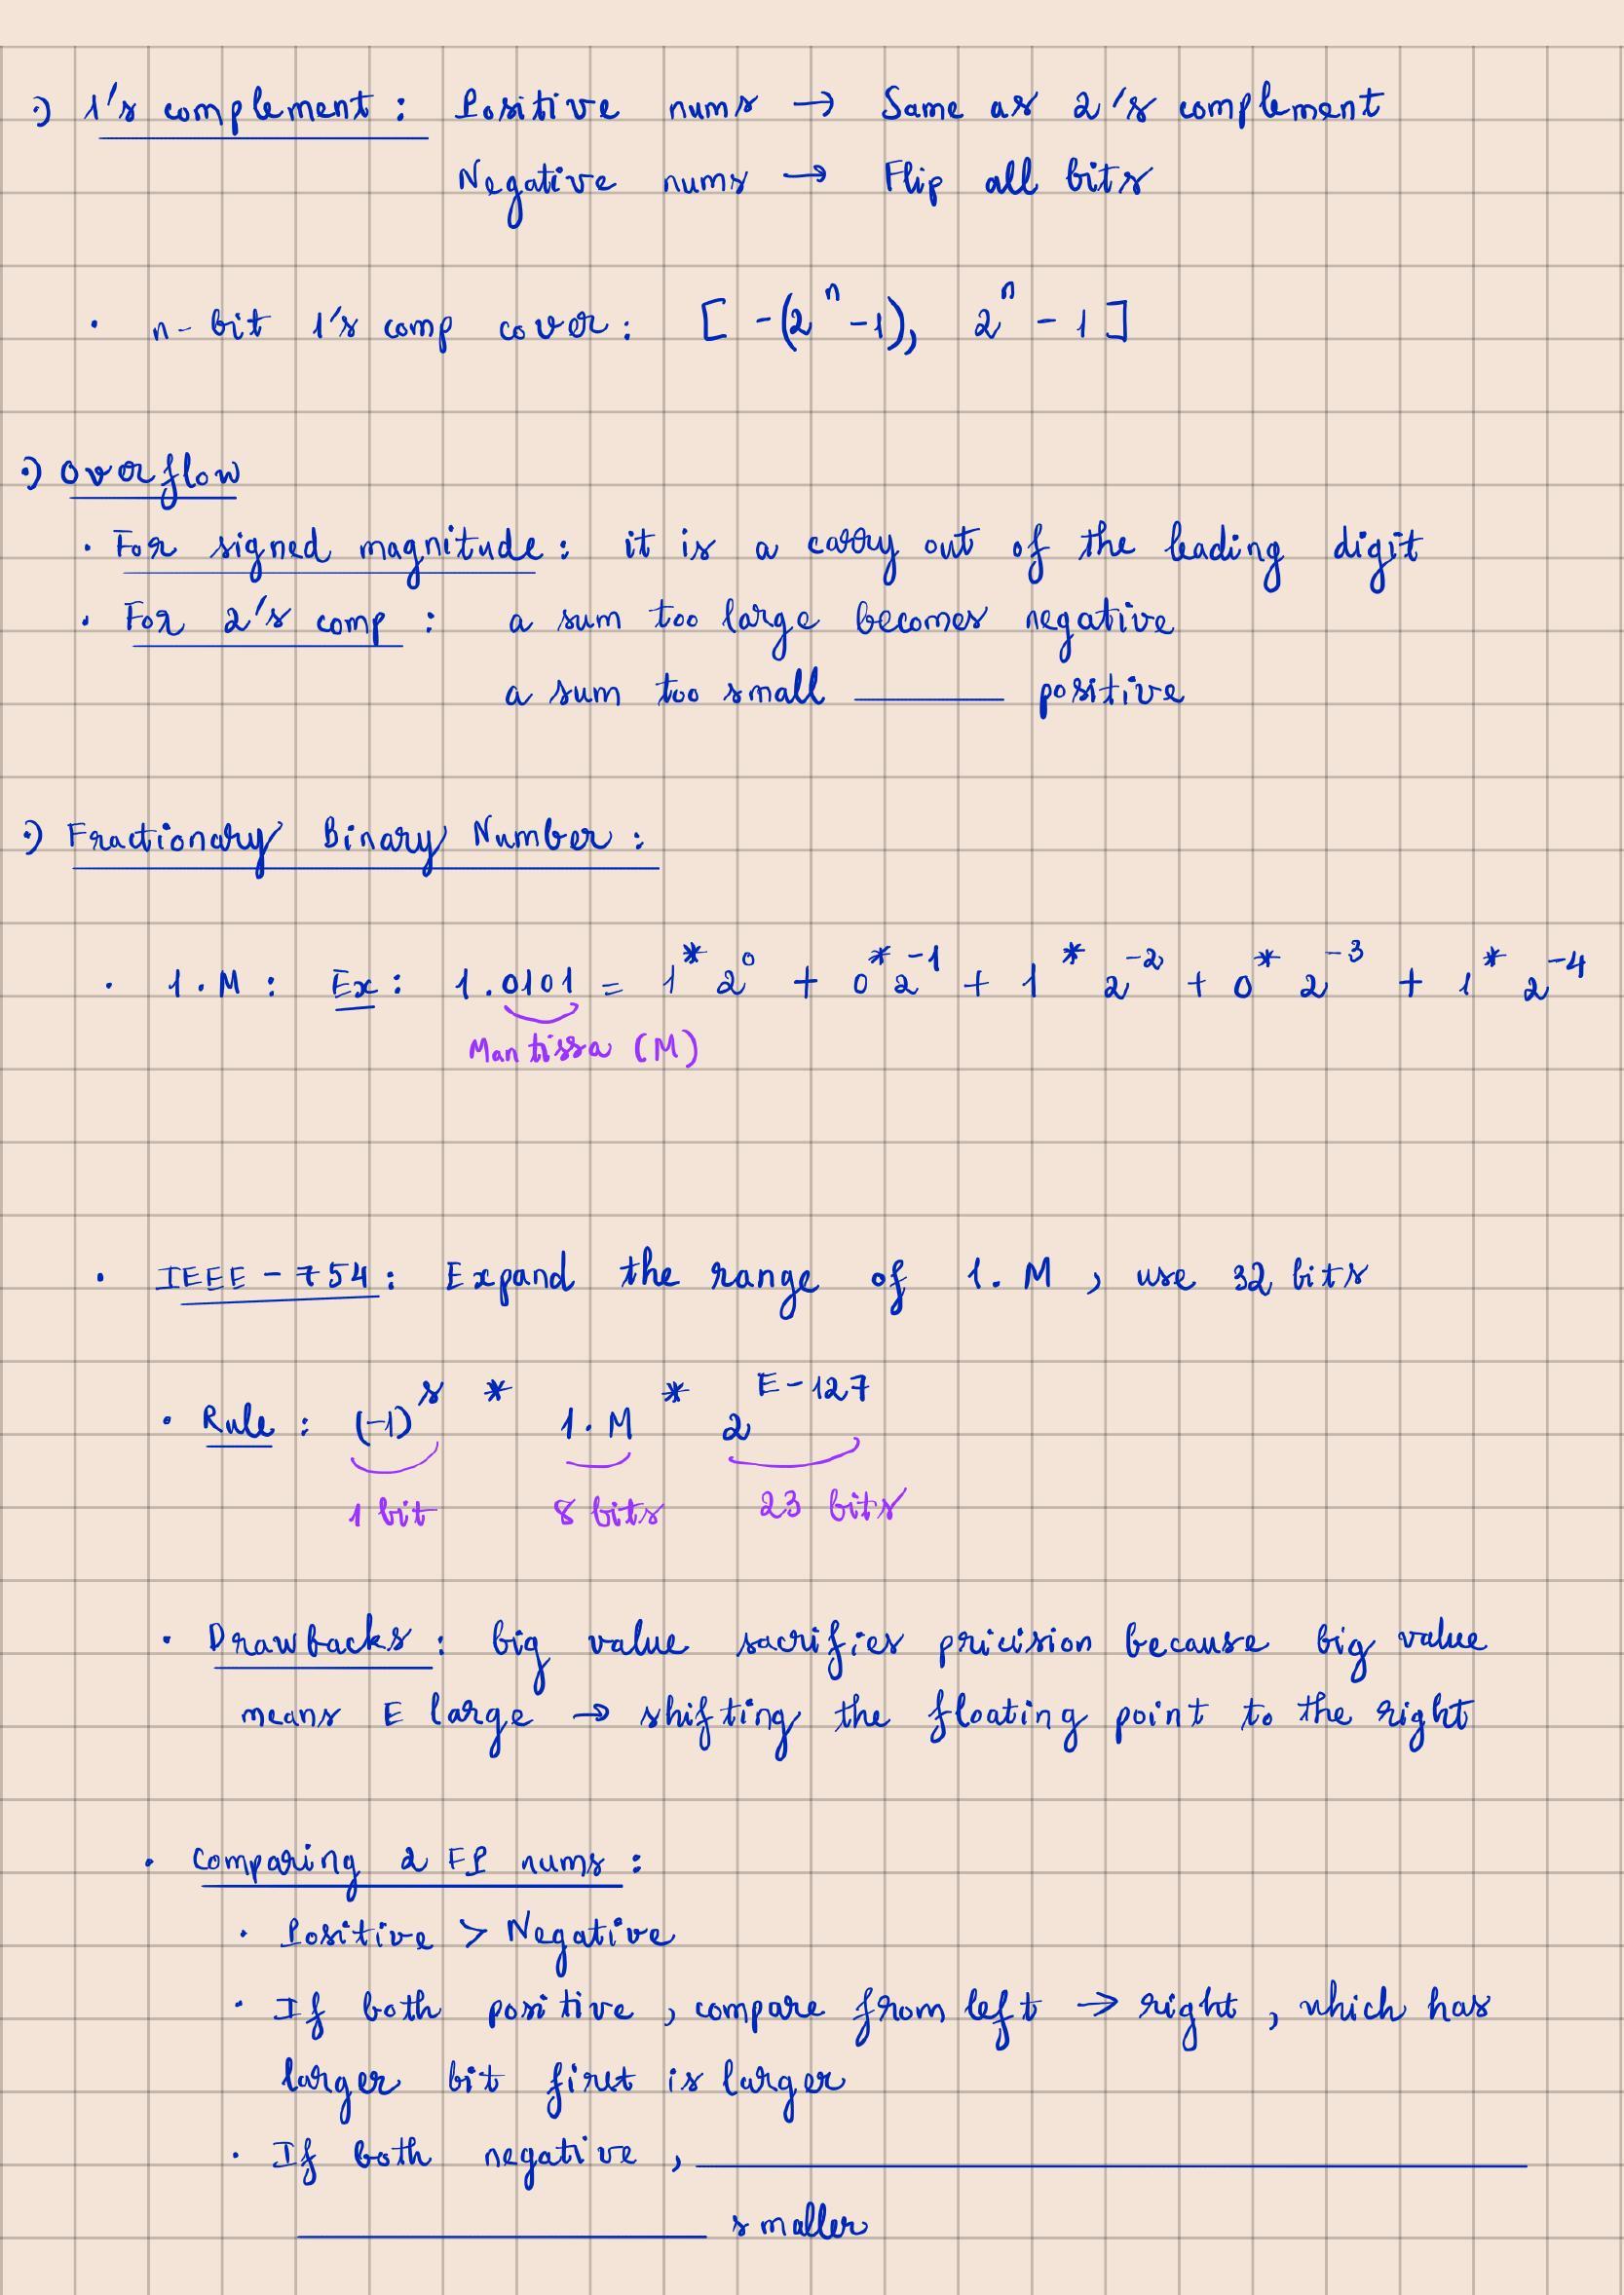 :) 1's complement : Positive nums → Same as 2's complement
Negative nums → Flip all bits
· n-bit 1's comp cover : [ -(2^n -1), 2^n - 1 ]
:) Overflow
· For signed magnitude : it is a carry out of the leading digit
· For 2's comp : a sum too large becomes negative
a sum too small ______ positive
:) Fractionary Binary Number :
· 1.M : Ex : 1.0101 = 1 * 2^0 + 0 * 2^-1 + 1 * 2^-2 + 0 * 2^-3 + 1 * 2^-4
Mantissa (M)
· IEEE - 754 : Expand the range of 1.M , use 32 bits
· Rule : (-1)^s * 1.M * 2^E-127
1 bit 8 bits 23 bits
· Drawbacks : big value sacrifies pricision because big value
means E large → shifting the floating point to the right
· Comparing 2 FP nums :
· Positive > Negative
· If both positive , compare from left → right , which has
larger bit first is larger
· If both negative , ______
______ smaller